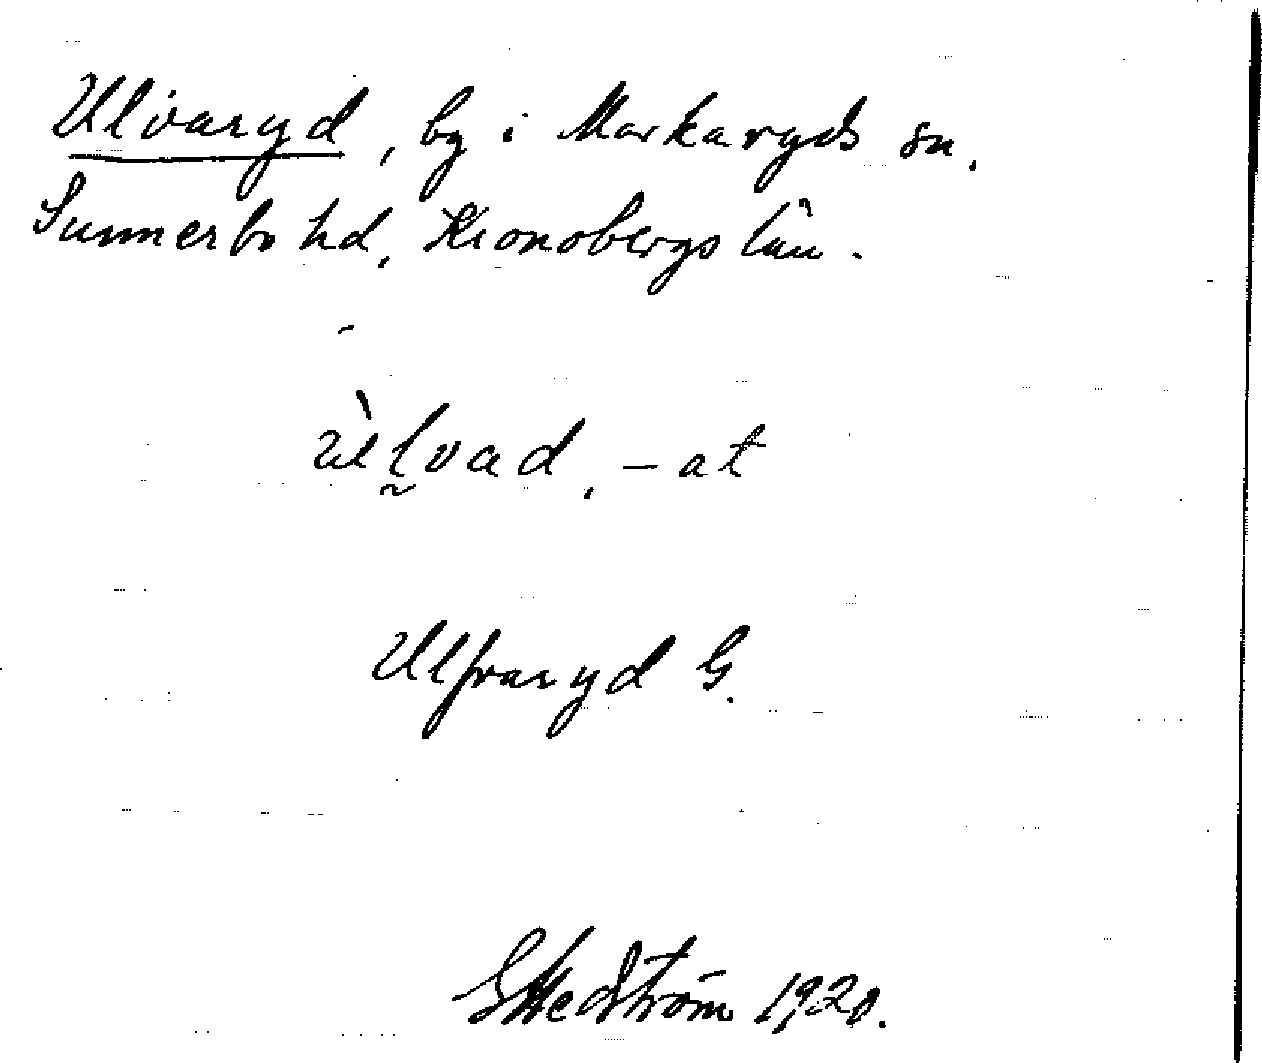 Ulvaryd, by i Markaryds sn.
Sunnerbo hd, Kronobergs län.
ùlvad, -at
Ulfvaryd G.
G Hedström 1920.